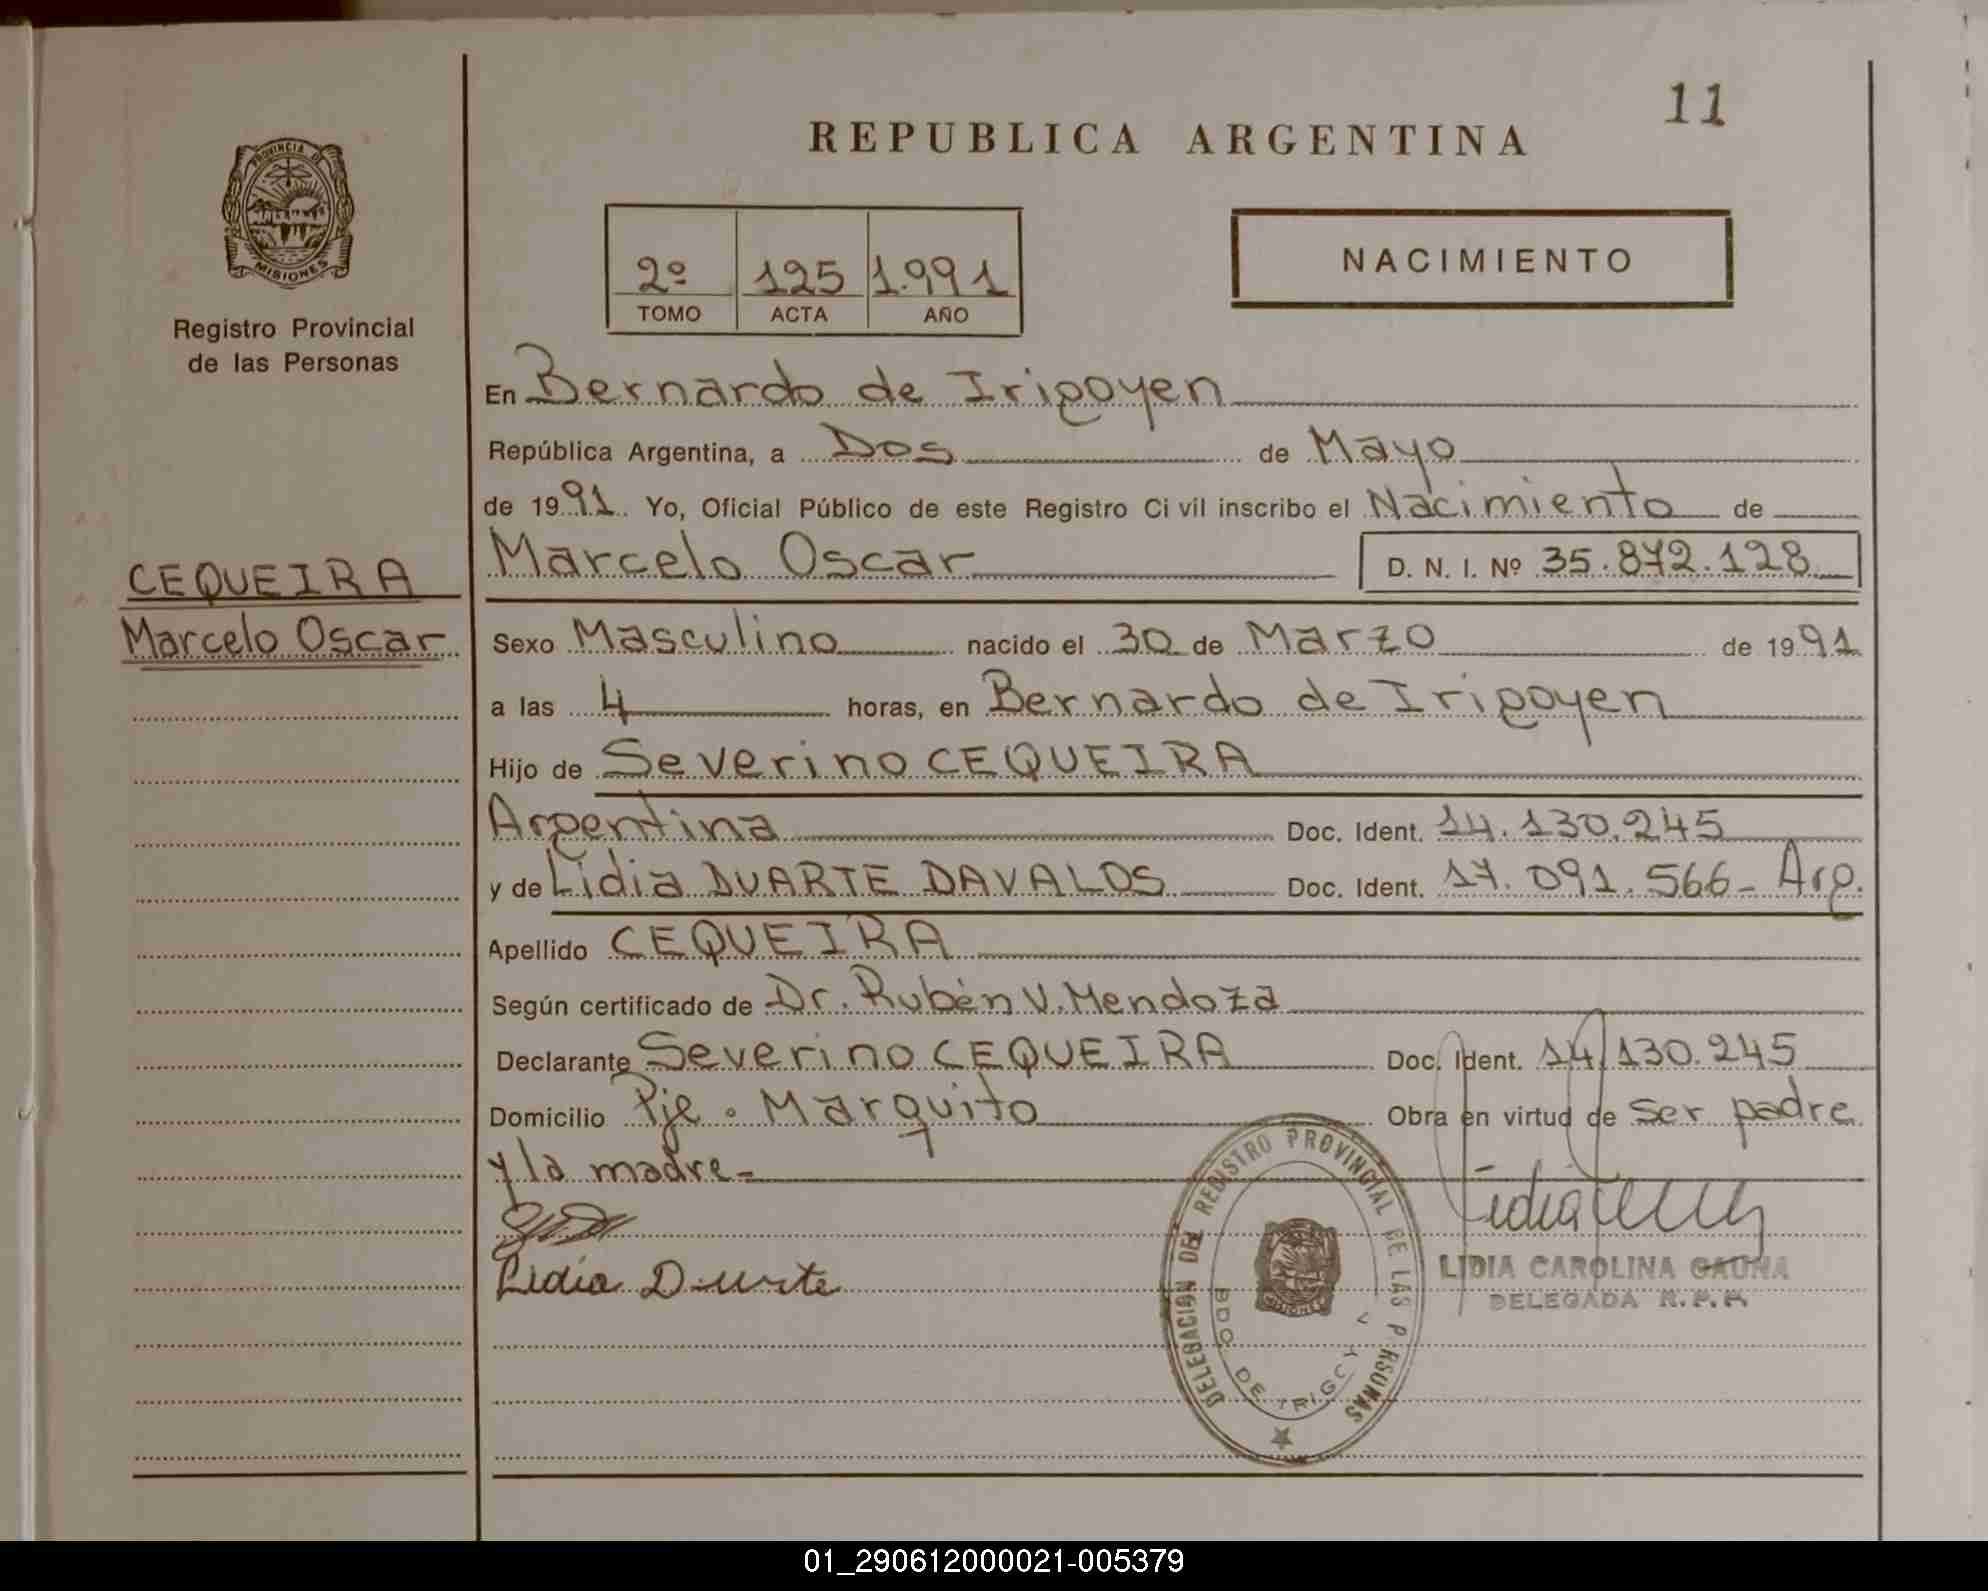 11
REPUBLICA ARGENTINA
PROVINCIA DE
MISIONES
Registro Provincial
de las Personas
2º 125 1.991
TOMO ACTA AÑO
NACIMIENTO
En Bernardo de Irigoyen
República Argentina, a Dos de Mayo
de 1991. Yo, Oficial Público de este Registro Ci vil inscribo el Nacimiento de
Marcelo Oscar D. N. I. Nº 35.872.128
CEQUEIRA
Marcelo Oscar
Sexo Masculino nacido el 30 de Marzo de 1991
a las 4 horas, en Bernardo de Irigoyen
Hijo de Severino CEQUEIRA
Argentina Doc. Ident. 14.130.245
y de Lidia DUARTE DAVALOS Doc. Ident. 17.091.566- Arg.
Apellido CEQUEIRA
Según certificado de Dr. Rubén V. Mendoza
Declarante Severino CEQUEIRA Doc. Ident. 14.130.245
Domicilio Pje. Marquito Obra en virtud de ser padre
y la madre-
Lidia Duarte
DELEGACION DEL REGISTRO PROVINCIAL DE LAS P RSONAS
MISIONES
BDO DE IRIGOY
LIDIA CAROLINA GAUNA
DELEGADA R.P.P.
01_290612000021-005379